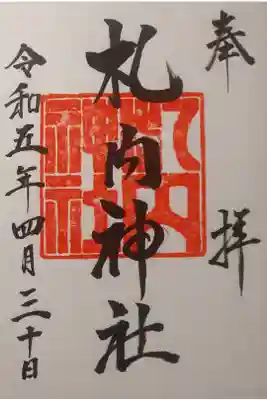 奉拝
札内神社
札内神社
令和五年四月三十日